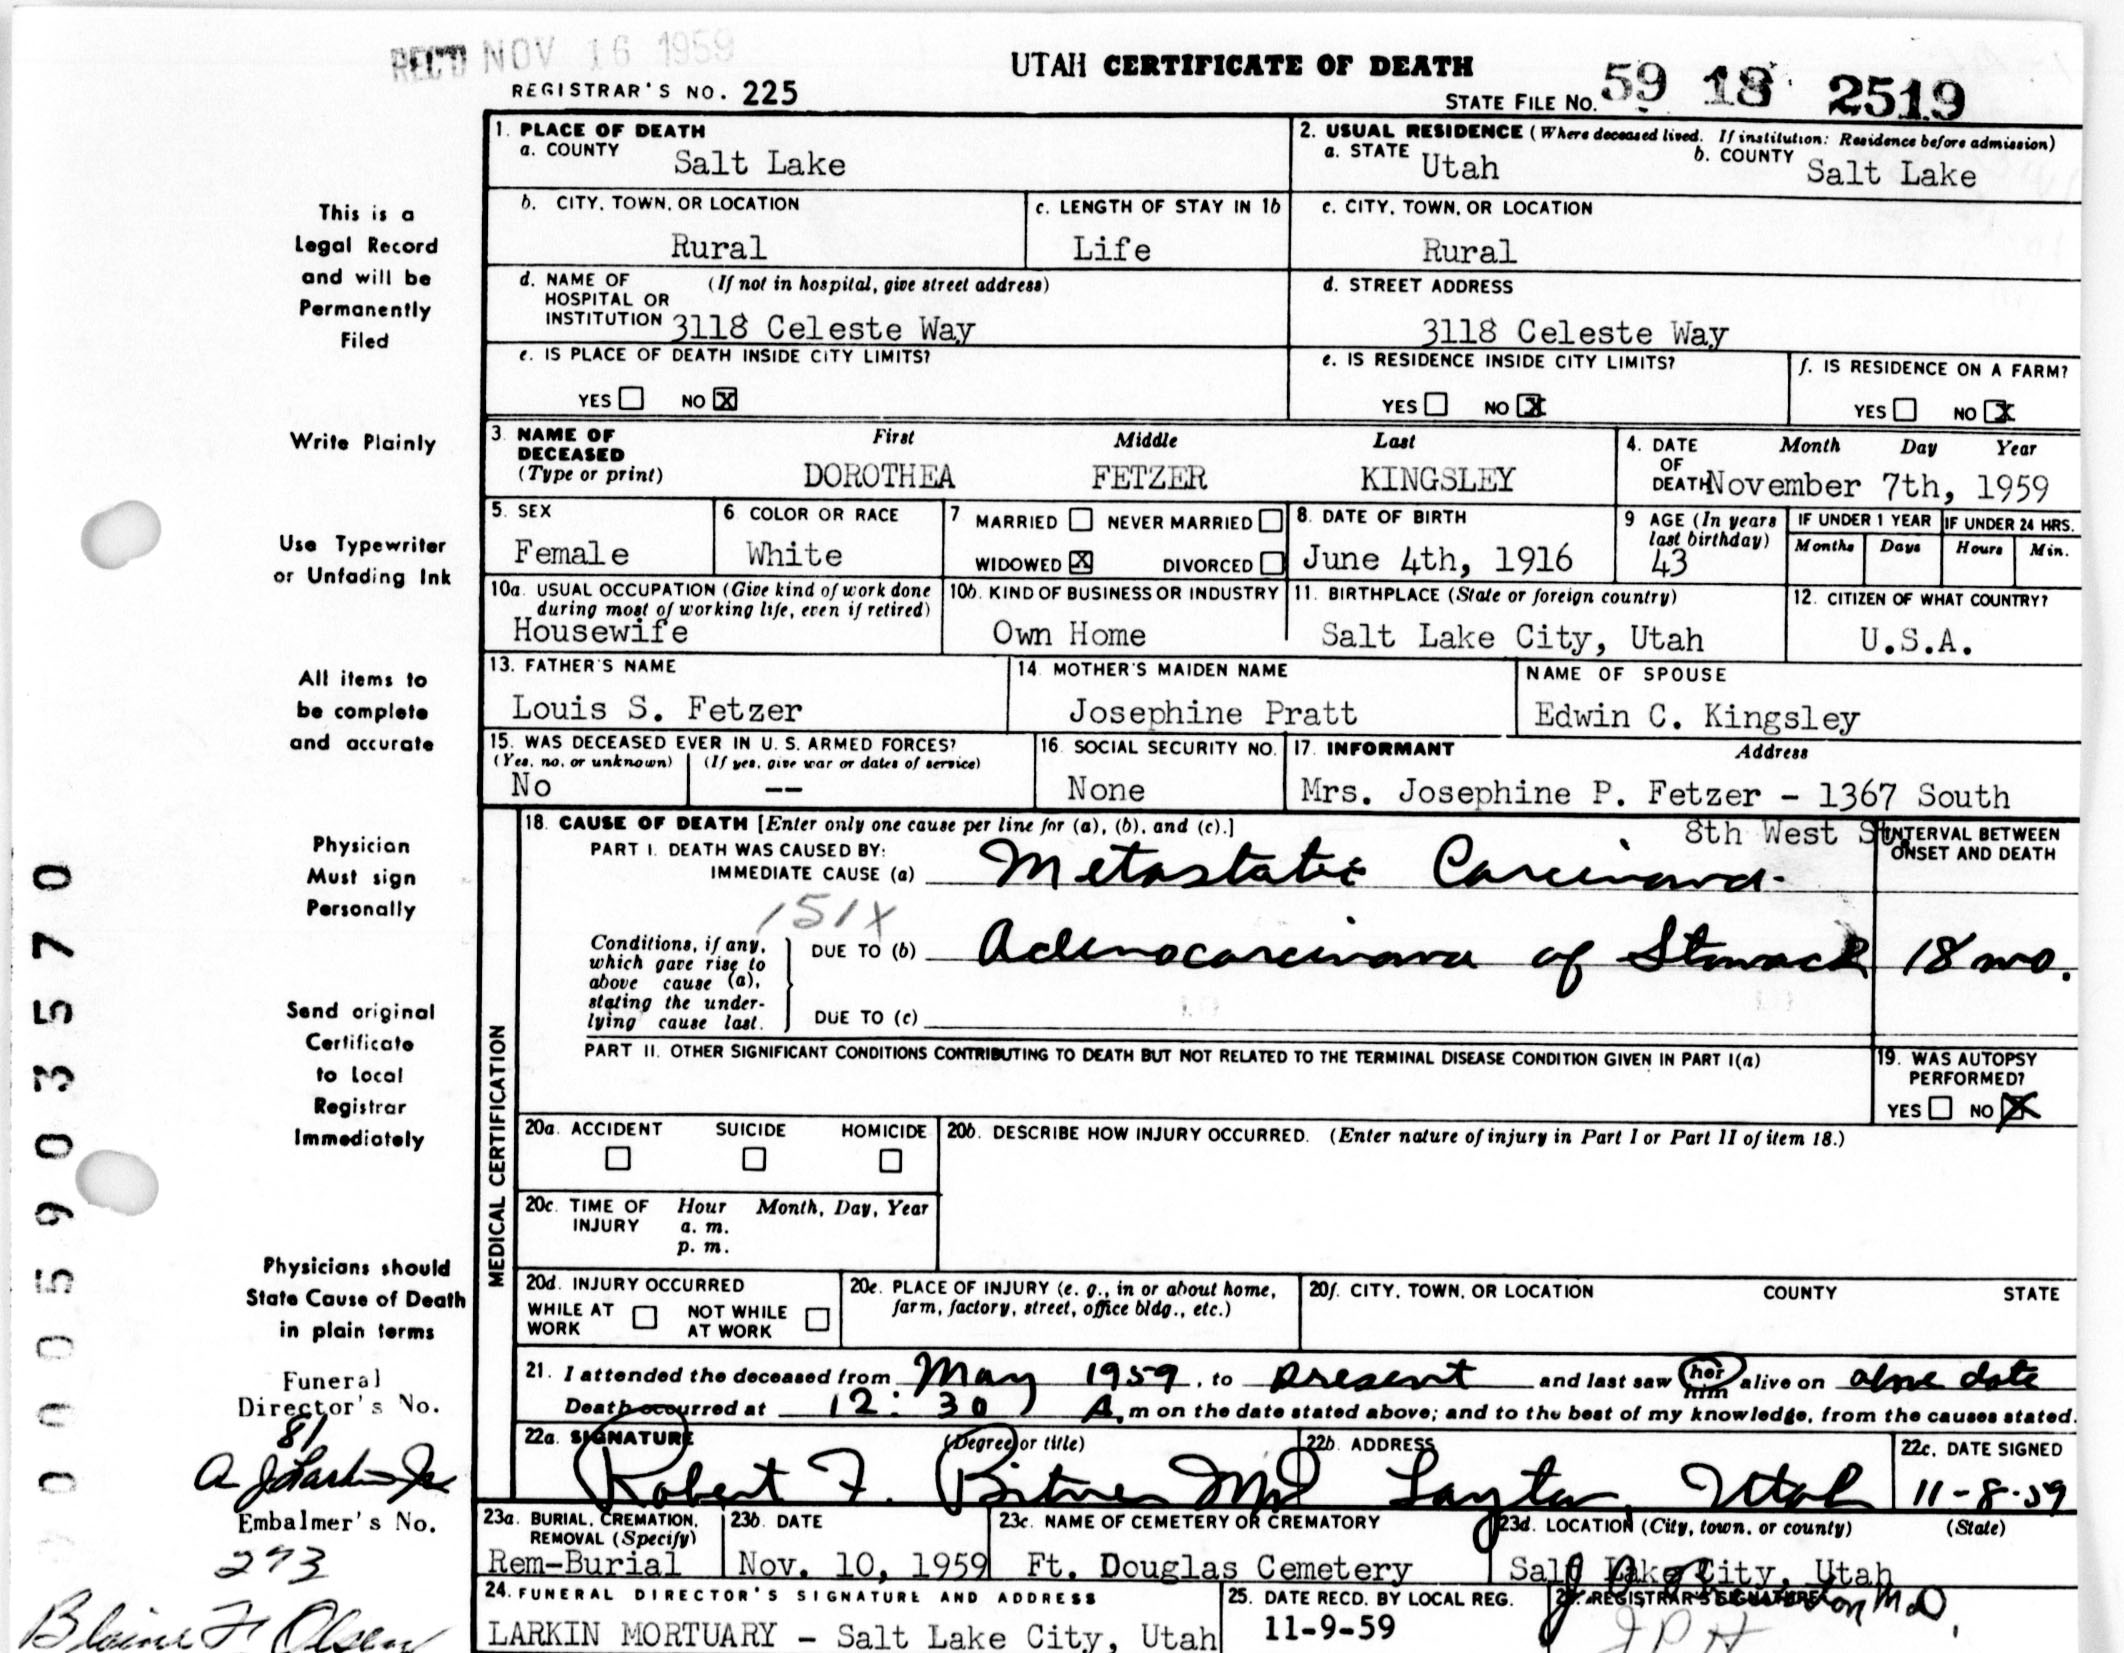 REC'D NOV 16 1959
UTAH CERTIFICATE OF DEATH
REGISTRAR'S NO. 225
STATE FILE NO. 59 18 2519
1. PLACE OF DEATH
a. COUNTY Salt Lake
2. USUAL RESIDENCE (Where deceased lived. If institution: Residence before admission)
a. STATE Utah b. COUNTY Salt Lake
b. CITY, TOWN, OR LOCATION Rural
c. LENGTH OF STAY IN 1b Life
c. CITY, TOWN, OR LOCATION Rural
d. NAME OF HOSPITAL OR INSTITUTION (If not in hospital, give street address) 3118 Celeste Way
d. STREET ADDRESS 3118 Celeste Way
e. IS PLACE OF DEATH INSIDE CITY LIMITS?
YES NO X
e. IS RESIDENCE INSIDE CITY LIMITS?
YES NO X
f. IS RESIDENCE ON A FARM?
YES NO X
3. NAME OF DECEASED (Type or print)
First Middle Last
DOROTHEA FETZER KINGSLEY
4. DATE OF DEATH Month Day Year
November 7th, 1959
5. SEX Female
6. COLOR OR RACE White
7 MARRIED NEVER MARRIED
WIDOWED X DIVORCED
8. DATE OF BIRTH June 4th, 1916
9 AGE (In years last birthday) 43
IF UNDER 1 YEAR Months Days
IF UNDER 24 HRS. Hours Min.
10a. USUAL OCCUPATION (Give kind of work done during most of working life, even if retired) Housewife
10b. KIND OF BUSINESS OR INDUSTRY Own Home
11. BIRTHPLACE (State or foreign country) Salt Lake City, Utah
12. CITIZEN OF WHAT COUNTRY? U.S.A.
13. FATHER'S NAME Louis S. Fetzer
14. MOTHER'S MAIDEN NAME Josephine Pratt
NAME OF SPOUSE Edwin C. Kingsley
15. WAS DECEASED EVER IN U. S. ARMED FORCES?
(Yes, no, or unknown) No
(If yes, give war or dates of service) --
16. SOCIAL SECURITY NO. None
17. INFORMANT Address
Mrs. Josephine P. Fetzer - 1367 South
8th West St
MEDICAL CERTIFICATION
18. CAUSE OF DEATH [Enter only one cause per line for (a), (b), and (c).]
INTERVAL BETWEEN ONSET AND DEATH
PART I. DEATH WAS CAUSED BY:
IMMEDIATE CAUSE (a) Metastatic Carcinoma
151X
Conditions, if any, which gave rise to above cause (a), stating the underlying cause last.
DUE TO (b) Adenocarcinoma of Stomach 18 mo.
DUE TO (c)
PART II. OTHER SIGNIFICANT CONDITIONS CONTRIBUTING TO DEATH BUT NOT RELATED TO THE TERMINAL DISEASE CONDITION GIVEN IN PART I(a)
19. WAS AUTOPSY PERFORMED?
YES NO X
20a. ACCIDENT SUICIDE HOMICIDE
20b. DESCRIBE HOW INJURY OCCURRED. (Enter nature of injury in Part I or Part II of item 18.)
20c. TIME OF INJURY Hour Month, Day, Year
a. m.
p. m.
20d. INJURY OCCURRED
WHILE AT WORK NOT WHILE AT WORK
20e. PLACE OF INJURY (e. g., in or about home, farm, factory, street, office bldg., etc.)
20f. CITY, TOWN, OR LOCATION COUNTY STATE
21. I attended the deceased from May 1959, to present and last saw her him alive on above date
Death occurred at 12:30 A. m on the date stated above; and to the best of my knowledge, from the causes stated.
22a. SIGNATURE (Degree or title) Robert F. Bitner MD
22b. ADDRESS Layton, Utah
22c. DATE SIGNED 11-8-59
23a. BURIAL, CREMATION, REMOVAL (Specify) Rem-Burial
23b. DATE Nov. 10, 1959
23c. NAME OF CEMETERY OR CREMATORY Ft. Douglas Cemetery
23d. LOCATION (City, town, or county) (State) Salt Lake City, Utah
24. FUNERAL DIRECTOR'S SIGNATURE AND ADDRESS
LARKIN MORTUARY - Salt Lake City, Utah
25. DATE RECD. BY LOCAL REG. 11-9-59
26. REGISTRAR'S SIGNATURE
M.D.
This is a
Legal Record
and will be
Permanently
Filed
Write Plainly
Use Typewriter
or Unfading Ink
All items to
be complete
and accurate
Physician
Must sign
Personally
Send original
Certificate
to Local
Registrar
Immediately
Physicians should
State Cause of Death
in plain terms
Funeral
Director's No.
81
A J Larkin Jr
Embalmer's No.
273
Blaine H Olsen
0005903570